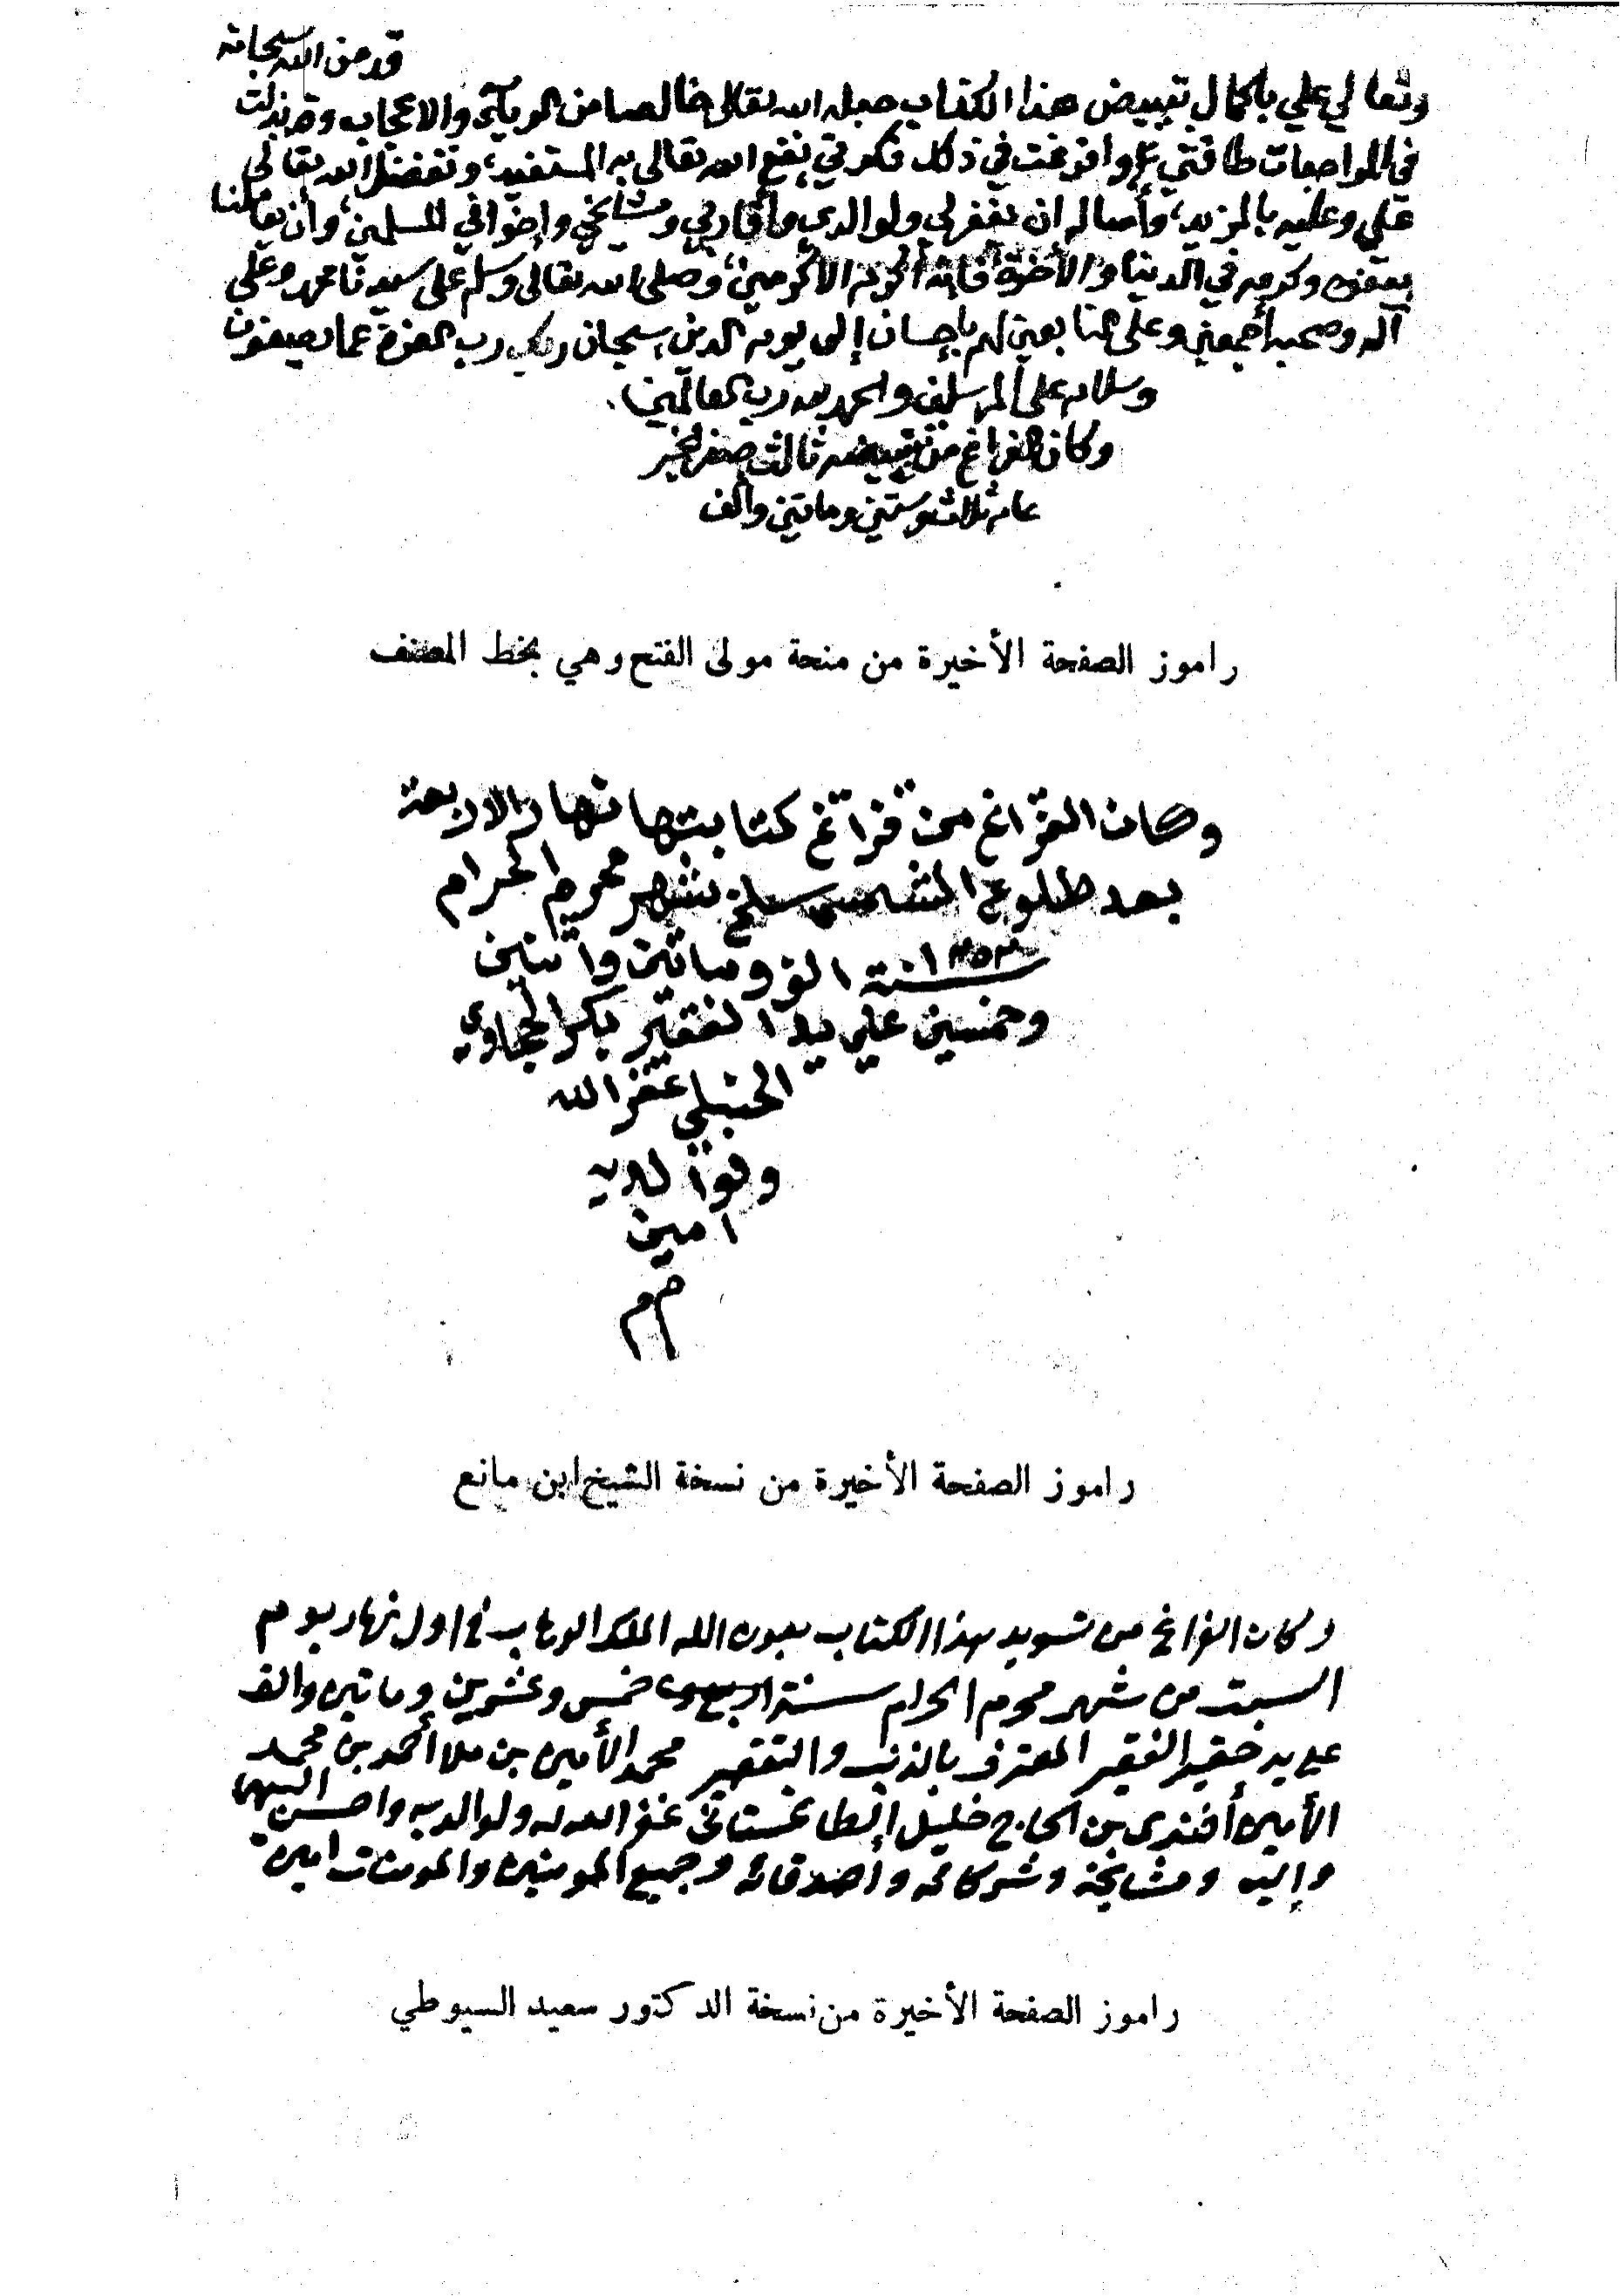 قد من الله سبحانه
وتعالى علي بإكمال تبييض هذا الكتاب جعله الله تعالى خالصا من الرياء والاعجاب وقد بذلت
في المراجعات طاقتي وافرغت في ذلك فكرتي نفع الله تعالى به المستفيد، وتفضل الله تعالى
علي وعليه بالمزيد، وأساله ان يغفر لي ولوالدي وأقاربي ومشايخي وإخواني المسلمين، وأن يعاملنا
بعفوه وكرمه في الدنيا والأخرة فانه أكرم الأكرمين، وصلى الله تعالى وسلم على سيدنا محمد وعلى
آله وصحبه أجمعين وعلى التابعين لهم بإحسان إلى يوم الدين، سبحان ربك رب العزة عما يصفون
وسلام على المرسلين والحمد لله رب العالمين.
وكان الفراغ من تبييضه ثالث صفر الخير
عام ثلاث وستين ومأتين والف
راموز الصفحة الأخيرة من منحة مولى الفتح وهي بخط المصنف
وكان الفراغ من فراغ كتابتها نهار الاربعة
بعد طلوع الشمس سلخ شهر محرم الحرام
سنة ١٢٥٢ الف وماتين واثنين
وخمسين علي يد الفقير بكر الحجاوي
الحنبلي غفر الله
ولوالديه
امين
م م
راموز الصفحة الأخيرة من نسخة الشيخ ابن مانع
وكان الفراغ من تسويد هذا الكتاب بعون الله الملك الوهاب في اول نهار يوم
السبت من شهر محرم الحرام سنة خمس وعشرين وماتين والف
على يد حقير الفقير المعترف بالذنب والتقصير محمد الأمين بن ملا أحمد بن محمد
الأمين أفندي بن الحاج خليل الطاغستاني غفر الله له ولوالديه واحسن اليهما
وإليه ومشايخه وشركائه وأصدقائه وجميع المومنين والمومنات امين
راموز الصفحة الأخيرة من نسخة الدكتور سعيد السيوطي